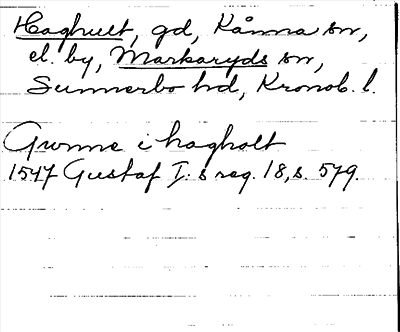 Haghult, gd, Kånna sn,
el. by, Markaryds sn,
Sunnerbo hd, Kronob. l.
Gwnne i hagholt
1547 Gustaf I:s reg. 18, s. 579.